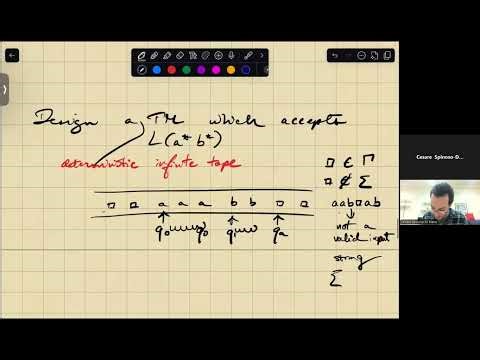 Design a TM which accepts
L(a* b*)
deterministic infinite tape
□ □ a a a b b □ □
q₀ q₀ q₁ qₐ
□ ∈ Γ
□ ∉ Σ
aab□ab
↓
not a
valid input
string
Σ
Cesare Spinoso-D...